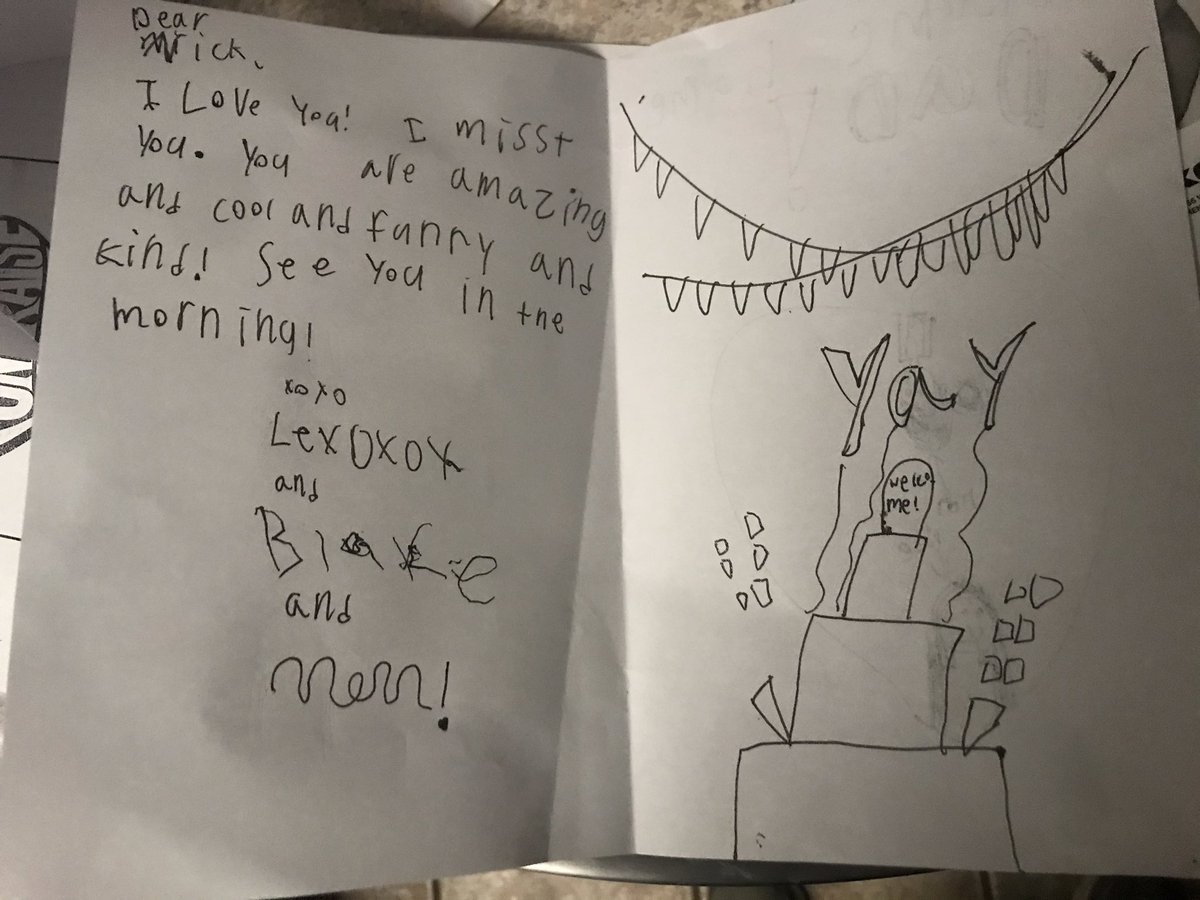 Dear
Mick,
I Love you! I misst
you. you are amazing
and cool and funny and
kind! See you in the
morning!
xoxo
Lexoxox
and
Blake
and
Mom!
Yay
welco
me!